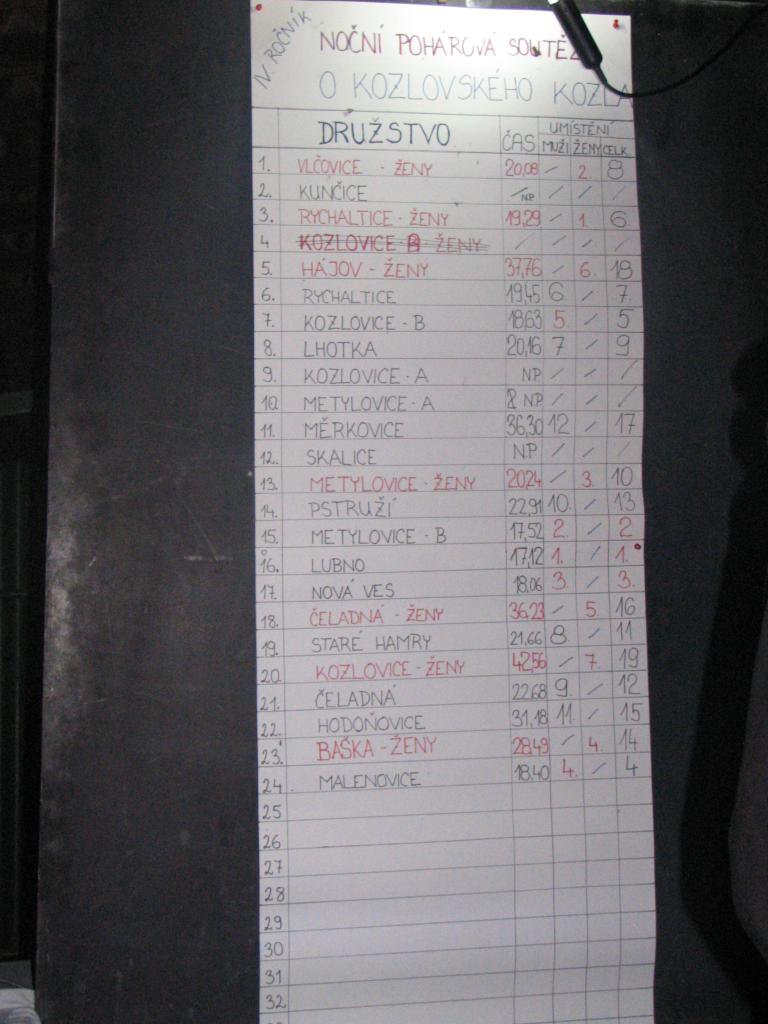 IV. ROČNÍK
NOČNÍ POHÁROVÁ SOUTĚŽ
O KOZLOVSKÉHO KOZLA
DRUŽSTVO ČAS UMÍSTĚNÍ
MUŽI ŽENY CELK.
1. VLČOVICE - ŽENY 20,08 / 2. 8
2. KUNČICE / NP / / /
3. RYCHALTICE - ŽENY 19,29 / 1. 6.
4 KOZLOVICE B - ŽENY / / / /
5. HÁJOV - ŽENY 37,76 / 6. 18
6. RYCHALTICE 19,45 6. / 7.
7. KOZLOVICE - B 18,63 5. / 5
8. LHOTKA 20,16 7 / 9
9. KOZLOVICE - A NP / / /
10. METYLOVICE - A NP / / /
11. MĚRKOVICE 36,30 12 / 17
12. SKALICE NP / / /
13. METYLOVICE - ŽENY 20,24 / 3. 10
14. PSTRUŽÍ 22,91 10. / 13
15. METYLOVICE - B 17,52 2. / 2
16. LUBNO 17,12 1. / 1.
17. NOVÁ VES 18,06 3. / 3.
18. ČELADNÁ - ŽENY 36,23 / 5. 16
19. STARÉ HAMRY 21,66 8. / 11
20. KOZLOVICE - ŽENY 42,56 / 7. 19
21. ČELADNÁ 22,68 9. / 12
22. HODOŇOVICE 31,18 11. / 15
23. BAŠKA - ŽENY 28,49 / 4. 14
24. MALENOVICE 18,40 4. / 4
25
26
27
28
29
30
31
32